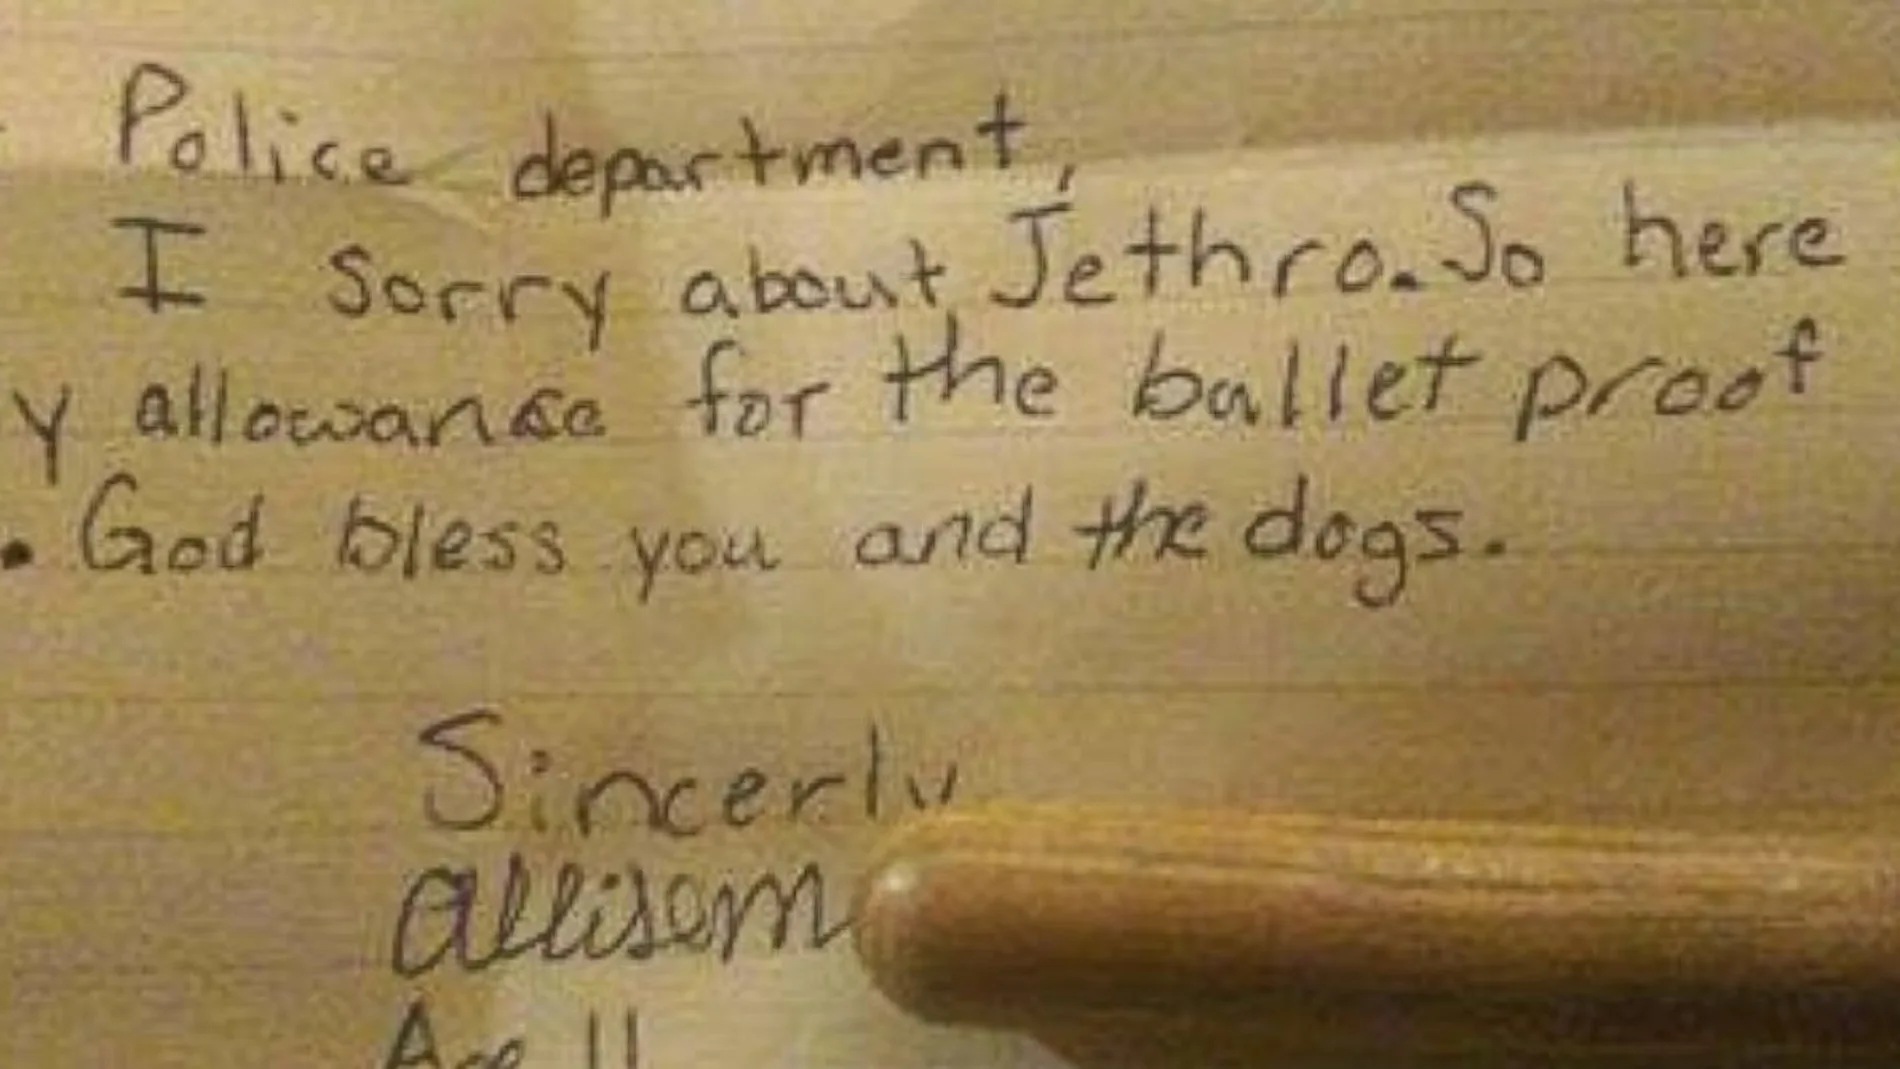 Police department,
I sorry about Jethro. So here
y allowance for the ballet proof
. God bless you and the dogs.
Sincerly
Allison
Age 11